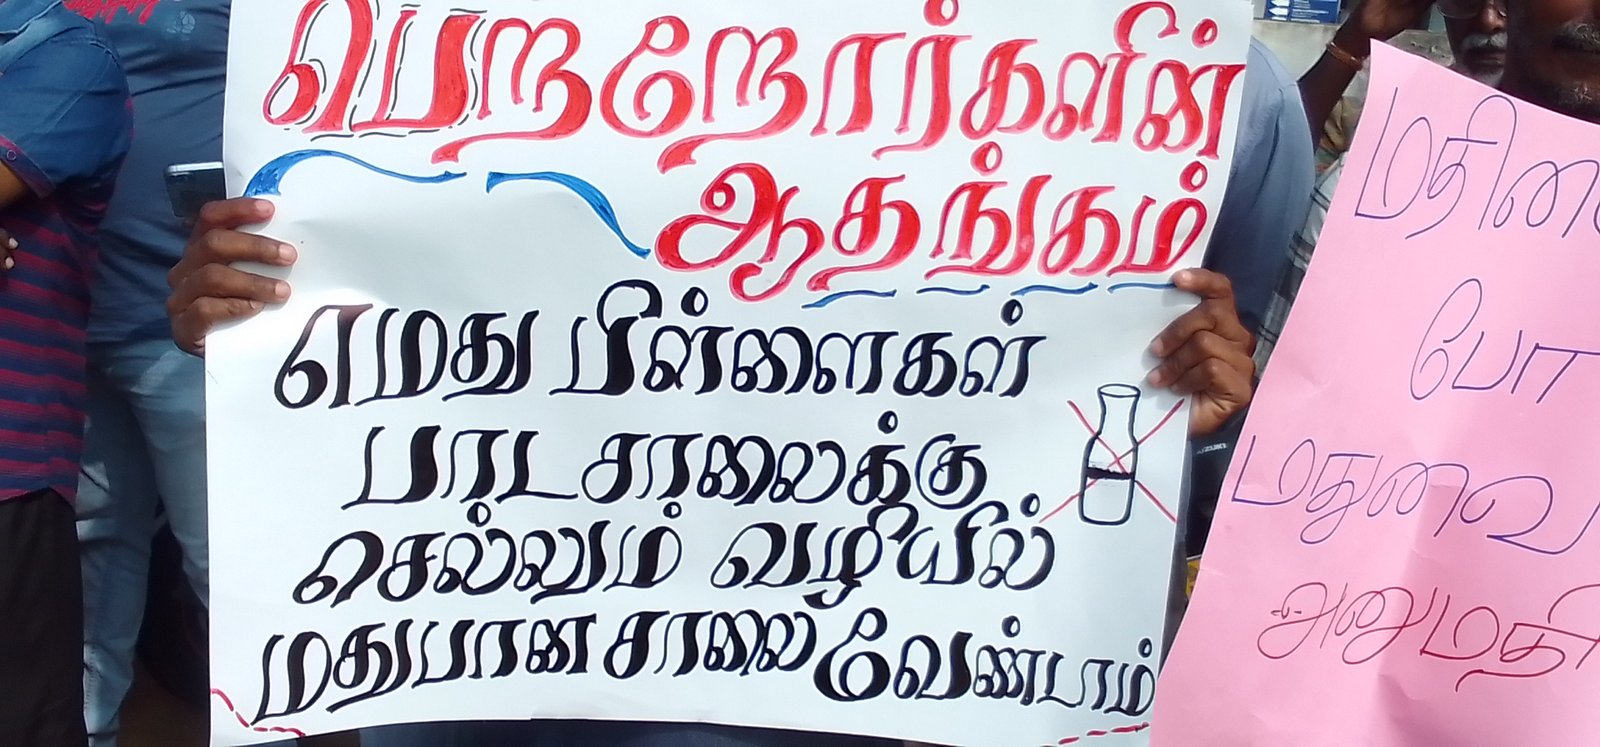 பெற்றோர்களின்
ஆதங்கம்
எமது பிள்ளைகள்
பாடசாலைக்கு
செல்லும் வழியில்
மதுபானசாலை வேண்டாம்
போ